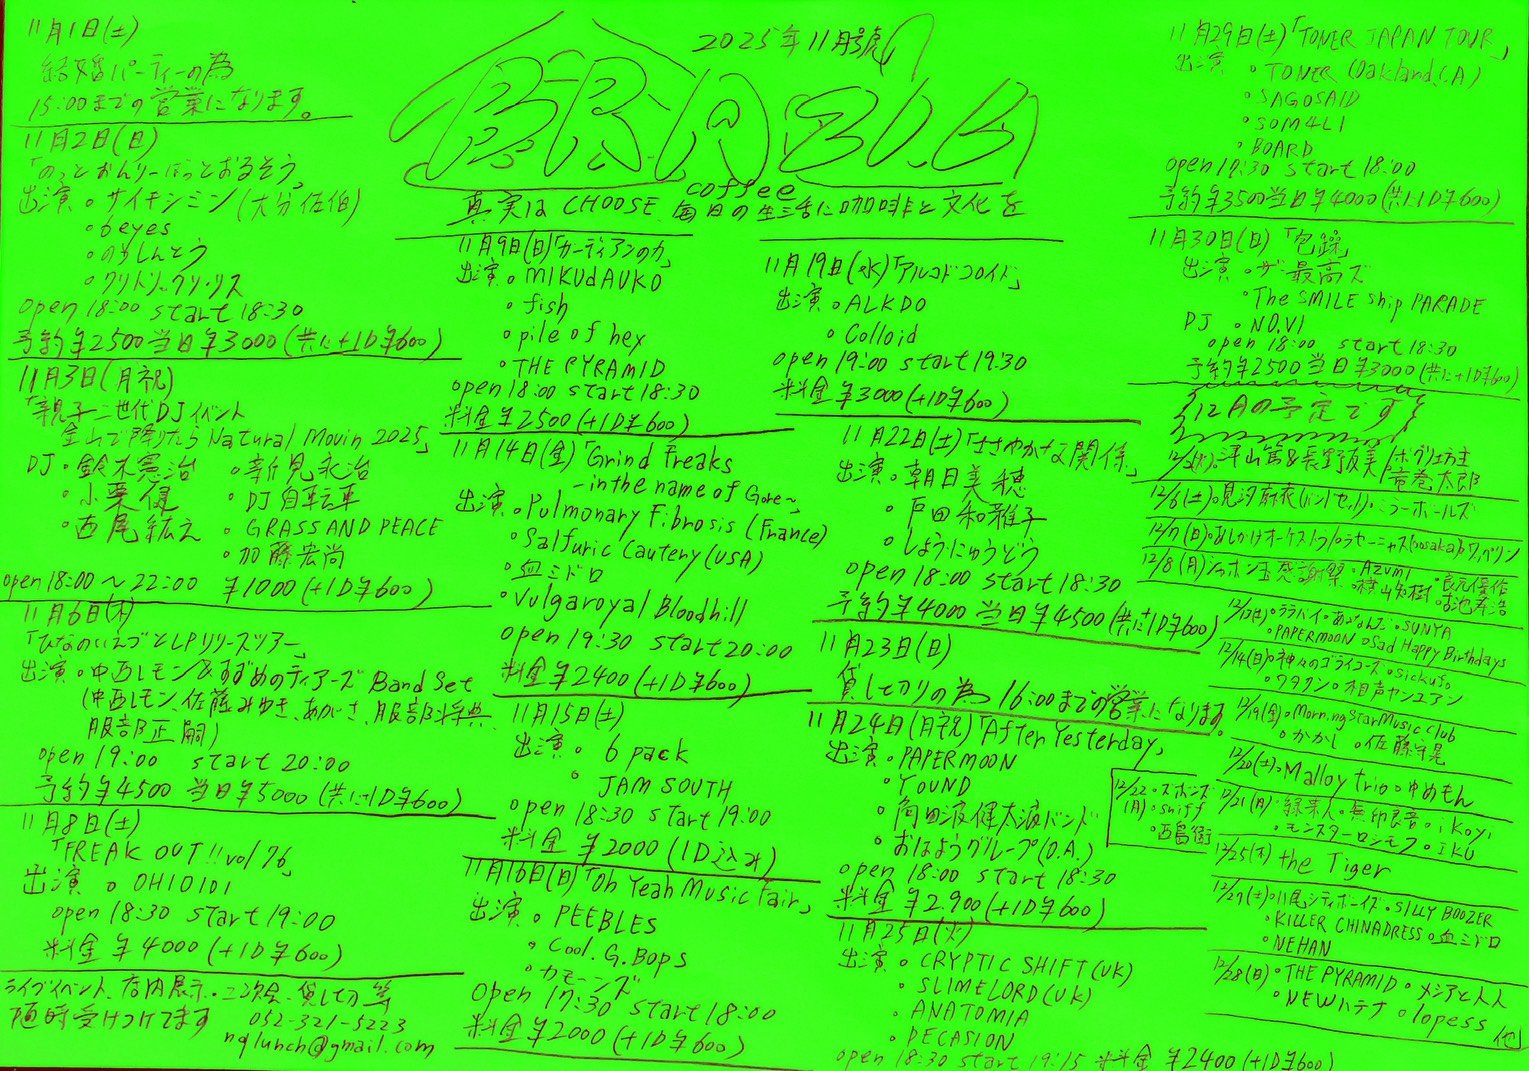 2025年11月号
BRAZIL
coffee
真実は CHOOSE 毎日の生活に咖啡と文化を
11月1日(土)
結婚パーティーの為
15:00までの営業になります。
11月2日(日)
「のっとおんりーばっとおるそう」
出演 ○サイキシミン(大分佐伯)
○6eyes
○のうしんとう
○クリトリック・リス
open 18:00 start 18:30
予約¥2500 当日¥3000(共に+1D¥600)
11月3日(月祝)
「親子二世代DJイベント
金山で降りたら Natural Movin 2025」
DJ ○鈴木憲治 ○新見永治
○小栗健 ○DJ自転車
○西尾紘之 ○GRASS AND PEACE
○加藤宏尚
open 18:00 ~ 22:00 ¥1000(+1D¥600)
11月6日(木)
「ひなのいえづとLPリリースツアー」
出演 ○中西レモン&すずめのティアーズ Band Set
(中西レモン、佐藤みゆき、あがさ、服部将典
服部正嗣)
open 19:00 start 20:00
予約¥4500 当日¥5000(共に+1D¥600)
11月8日(土)
「FREAK OUT!! vol 76」
出演 ○OHIO101
open 18:30 start 19:00
料金¥4000(+1D¥600)
ライブイベント、店内展示、二次会、貸し切り等
随時受けつけてます 052-321-5223
nqlunch@gmail.com
11月9日(日)「カーディアンの力」
出演 ○MIKUdAUKO
○fish
○pile of hex
○THE PYRAMID
open 18:00 start 18:30
料金¥2500(+1D¥600)
11月14日(金)「Grind freaks
-in the name of Gore~」
出演 ○Pulmonary Fibrosis (France)
○Salfuric Cautery (USA)
○血ミドロ
○Vulgaroyal Bloodhill
open 19:30 start 20:00
料金¥2400(+1D¥600)
11月15日(土)
出演 ○6 pack
○JAM SOUTH
open 18:30 start 19:00
料金¥2000(1D込み)
11月16日(日)「Oh Yeah Music Fair」
出演 ○PEEBLES
○Cool. G. Bops
○カモーンズ
open 17:30 start 18:00
料金¥2000(+1D¥600)
11月19日(水)「アルコドコロイド」
出演 ○ALKDO
○Colloid
open 19:00 start 19:30
料金¥3000(+1D¥600)
11月22日(土)「ささやかな関係」
出演 ○朝日美穂
○戸田和雅子
○しょうにゅうどう
open 18:00 start 18:30
予約¥4000 当日¥4500(共に+1D¥600)
11月23日(日)
貸し切りの為 16:00までの営業になります。
11月24日(月祝)「After Yesterday」
出演 ○PAPERMOON
○YOUND
○角田波健太波バンド
○おはようグループ(O.A.)
open 18:00 start 18:30
料金¥2.900(+1D¥600)
11月25日(火)
出演 ○CRYPTIC SHIFT(UK)
○SLIMELORD(UK)
○ANATOMIA
○DECASION
open 18:30 start 19:15 料金¥2400(+1D¥600)
11月29日(土)「TONER JAPAN TOUR」
出演 ○TONER (Oakland, CA)
○SAGOSAID
○SOM4LI
○BOARD
open 17:30 start 18:00
予約¥3500 当日¥4000(共に1D¥600)
11月30日(日)「包躁」
出演 ○ザ・最高ズ
○The SMILE Ship PARADE
DJ ○NO.VI
open 18:00 start 18:30
予約¥2500 当日¥3000(共に+1D¥600)
12月の予定です
12/2(火)○平山篤&長野友美/ボヴリ坊主/竜巻太郎
12/6(土)○見汐麻衣(バンドセット)○ミラーボールズ
12/7(日)○あしかけオーケストラ/○ラセーニャス(oosaka)○ワッペリン
12/8(月)シャボン玉感謝祭 ○Azumi ○良元優作
○横山知樹 ○古池寿浩
12/13(土)○ララバイ○あさなんだ○SUNYA
○PAPERMOON ○Sad Happy Birthdays
12/14(日)○神々のゴライコーズ○sickufo
○ワタクン○相声ヤンユアン
12/19(金)○Morning Star Music Club
○かかし ○佐藤守晃
12/20(土)○Malloy trio○ゆめもん
12/21(日)○緑茶人○無印良音○ikoyi
○モンスターロシモフ○IKU
12/22(月)○スポンズ
○sniff
○西島衛
12/25(木) the Tiger
12/27(土)○川民シティボーイズ○SILLY BOOZER
○KILLER CHINADRESS○血ミドロ
○NEHAN
12/28(日)○THE PYRAMID ○メシアと人人
○NEWハテナ ○lopess 他